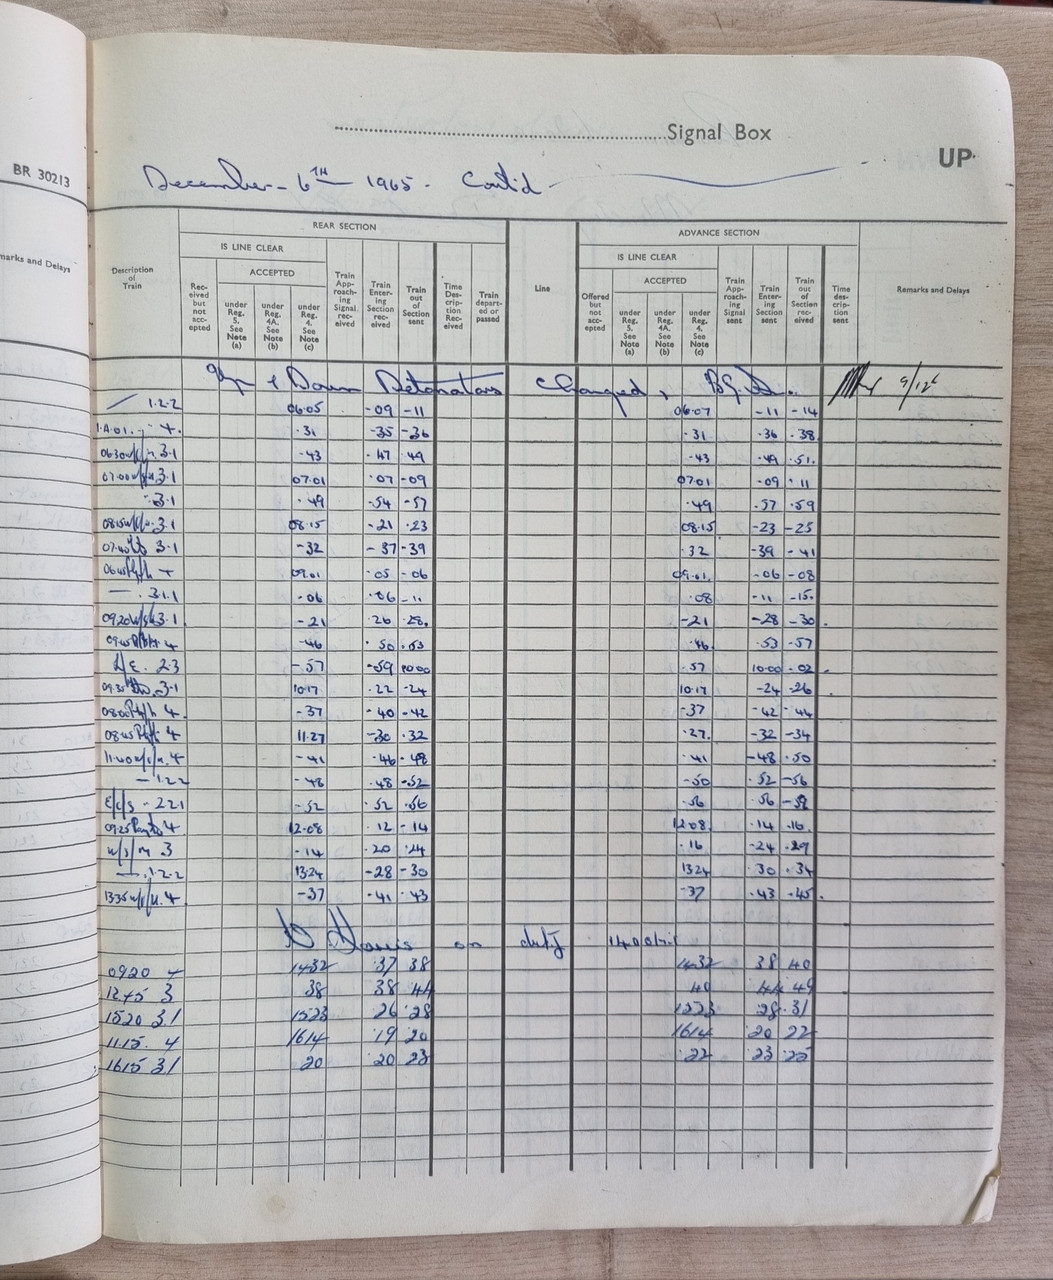 BR 30213
marks and Delays
Signal Box
UP
December - 6TH 1965 - Cont'd
REAR SECTION
ADVANCE SECTION
IS LINE CLEAR
IS LINE CLEAR
ACCEPTED
ACCEPTED
Description of Train
Received but not accepted
under Reg. 5. See Note (a)
under Reg. 4A. See Note (b)
under Reg. 4. See Note (c)
Train Approaching Signal received
Train Entering Section received
Train out of Section sent
Time Description Received
Train departed or passed
Line
Offered but not accepted
under Reg. 5. See Note (a)
under Reg. 4A. See Note (b)
under Reg. 4. See Note (c)
Train Approaching Signal sent
Train Entering Section sent
Train out of Section received
Time description sent
Remarks and Delays
Up & Down Detonators Changed,
1.2.2 06.05 -09 -11 06.07 -11 -14
1.A.01. .31 -35 -36 .31 -36 .38
3.1 .43 .47 .49 .43 .49 .51.
3.1 07.01 .07 -09 07.01 -09 .11
3.1 .49 -54 -57 .49 .57 .59
3.1 08.15 -21 .23 08.15 -23 -25
3.1 -32 -37 -39 .32 -39 -41
09.01 .05 -06 09.01. -06 -08
3.1.1 -06 .06 -11 .08 -11 -15.
3.1 -21 .26 .28, -21 -28 -30
4 -46 .50 .53 .46. .53 -57
L/E. 2.3 -.57 -59 10.00 .57 10.00 .02
3.1 10.17 .22 -24 10.17 -24 -26
4. -37 -40 -42 -37 -42 .44
4 11.27 -30 .32 .27. -32 -34
4 -41 .46 .48 .41 -48 .50
1.2.2 -48 .48 -52 -50 .52 -56
E/C/S - 2.2.1 -52 .52 .56 .56 .56 -58
4 12.08 .12 -14 12.08. .14 .16.
3 -14 .20 .24 .16 -24 .29
1.2.2 13.24 -28 -30 13.24 .30 .34
4. -37 -41 .43 -37 .43 -45.
on duty
0920 4 1432 .37 38 1432 38 40
1245 3 38 38 44 40 44 49
1520 31 1523 26 .28 1523 .28 .31
11.15. 4 1614 .19 20 1614 .20 22
1615 31 20 .20 23 .22 .23 .25